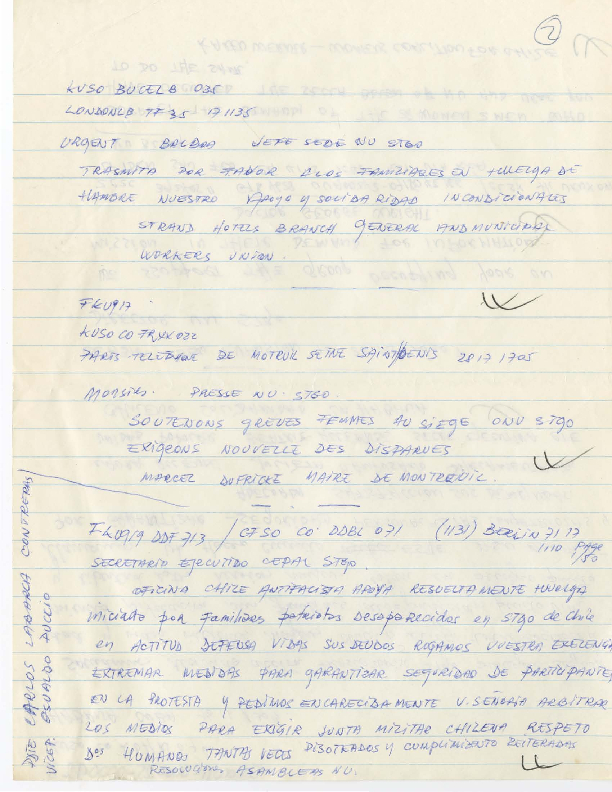 2
KUSO BUCELB 035
LONDONLB TF 35 17 1135
URGENT BALBOA JEFE SEDE NU STGO
TRASMITA POR FAVOR A LOS FAMILIARES EN HUELGA DE
HAMBRE NUESTRO APOYO Y SOLIDARIDAD INCONDICIONALES
STRAND HOTELS BRANCH GENERAL AND MUNICIPAL
WORKERS UNION.
FKU917
KUSO CO FRXX 022
PARIS TELEPHONE DE MOTRUIL SEINE SAINT DENIS 28 17 1705
MONSIEU. PRESSE NU. STGO.
SOUTENONS GREVES FEMMES AU SIEGE ONU STGO
EXIGEONS NOUVELLE DES DISPARUES
MARCEL DUFRICHE MAIRE DE MONTREUIL.
FKU919 DDF 713 / CTSO CO DDBL 071 (1131) BERLIN 71 17
1110 PAGE
1/50
SECRETARIO EJECUTIVO CEPAL STGO.
OFICINA CHILE ANTIFACISTA APOYA RESUELTAMENTE HUELGA
iniciada por familiares patriotas desaparecidos en STGO de Chile
en ACTITUD DEFENSA VIDAS SUS DEUDOS ROGAMOS VUESTRA EXELENCIA
EXTREMAR MEDIDAS PARA GARANTIZAR SEGURIDAD DE PARTICIPANTES
EN LA PROTESTA y PEDIMOS ENCARECIDAMENTE V. SEÑORIA ARBITRAR
LOS MEDIOS PARA EXIGIR JUNTA MILITAR CHILENA RESPETO
DOS HUMANOS TANTAS VECES y CUMPLIMIENTO REITERADAS
RESOLUCIONES ASAMBLEAS NU.
DSTE CARLOS LABARCA CONTRERAS
VICEP. OSVALDO PUCCIO